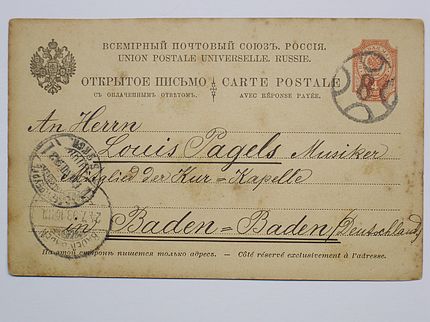 ВСЕМІРНЫЙ ПОЧТОВЫЙ СОЮЗЪ. РОССІЯ.
UNION POSTALE UNIVERSELLE. RUSSIE.
ОТКРЫТОЕ ПИСЬМО CARTE POSTALE
СЪ ОПЛАЧЕННЫМЪ ОТВѢТОМЪ. AVEC RÉPONSE PAYÉE.
An Herrn
Louis Pagels Musiker
Mitglied der Kur-Kapelle
in Baden-Baden (Deutschland)
На этой сторонѣ пишется только адресъ. - Côté réservé exclusivement à l'adresse.